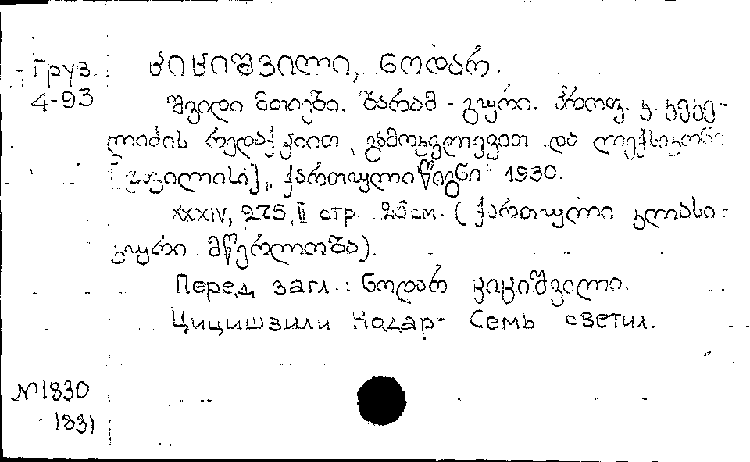 Груз. ციციშვილი, ნოდარ.
4-93 შვიდი მთიები. ბარამ-გური. პროფ. კ. კეკე-
ლიძის რედაქციით, გამოკვლევით და ლექსიკონი
[ტფილისი], „ქართული წიგნი" 1930.
XXXIV, 275, II стр. 25 см. (ქართული კლასი-
კური მწერლობა).
Перед загл.: ნოდარ ციციშვილი.
Цицишвили Нодар - Семь светил.
№ 1830
1831